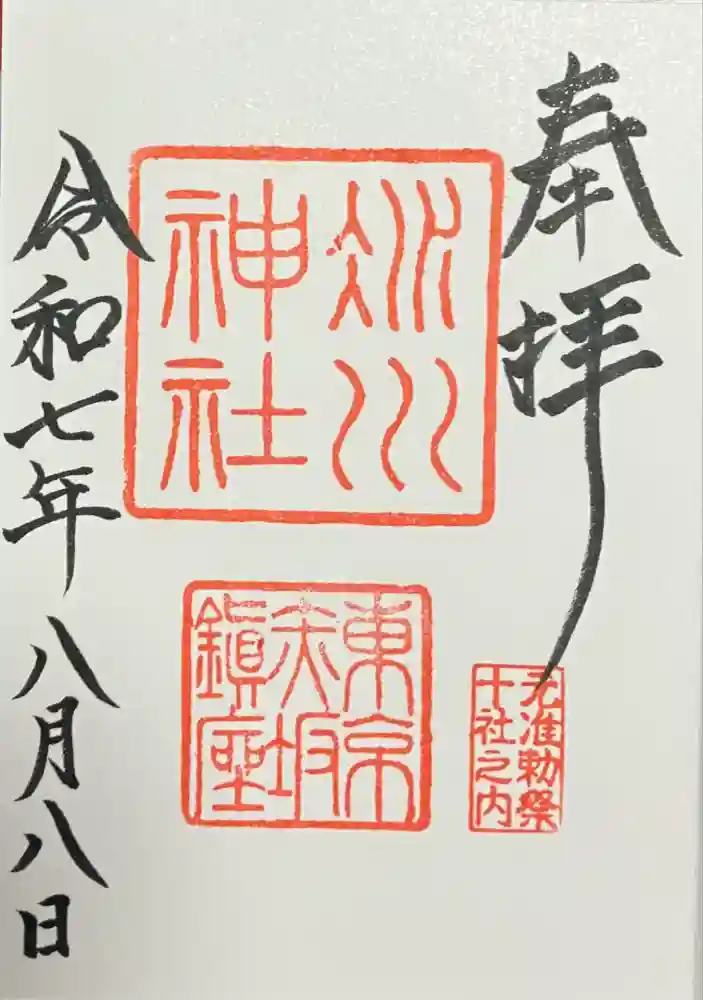 奉拝
氷川
神社
東京
赤坂
鎮座
元准勅祭
十社之内
令和七年八月八日